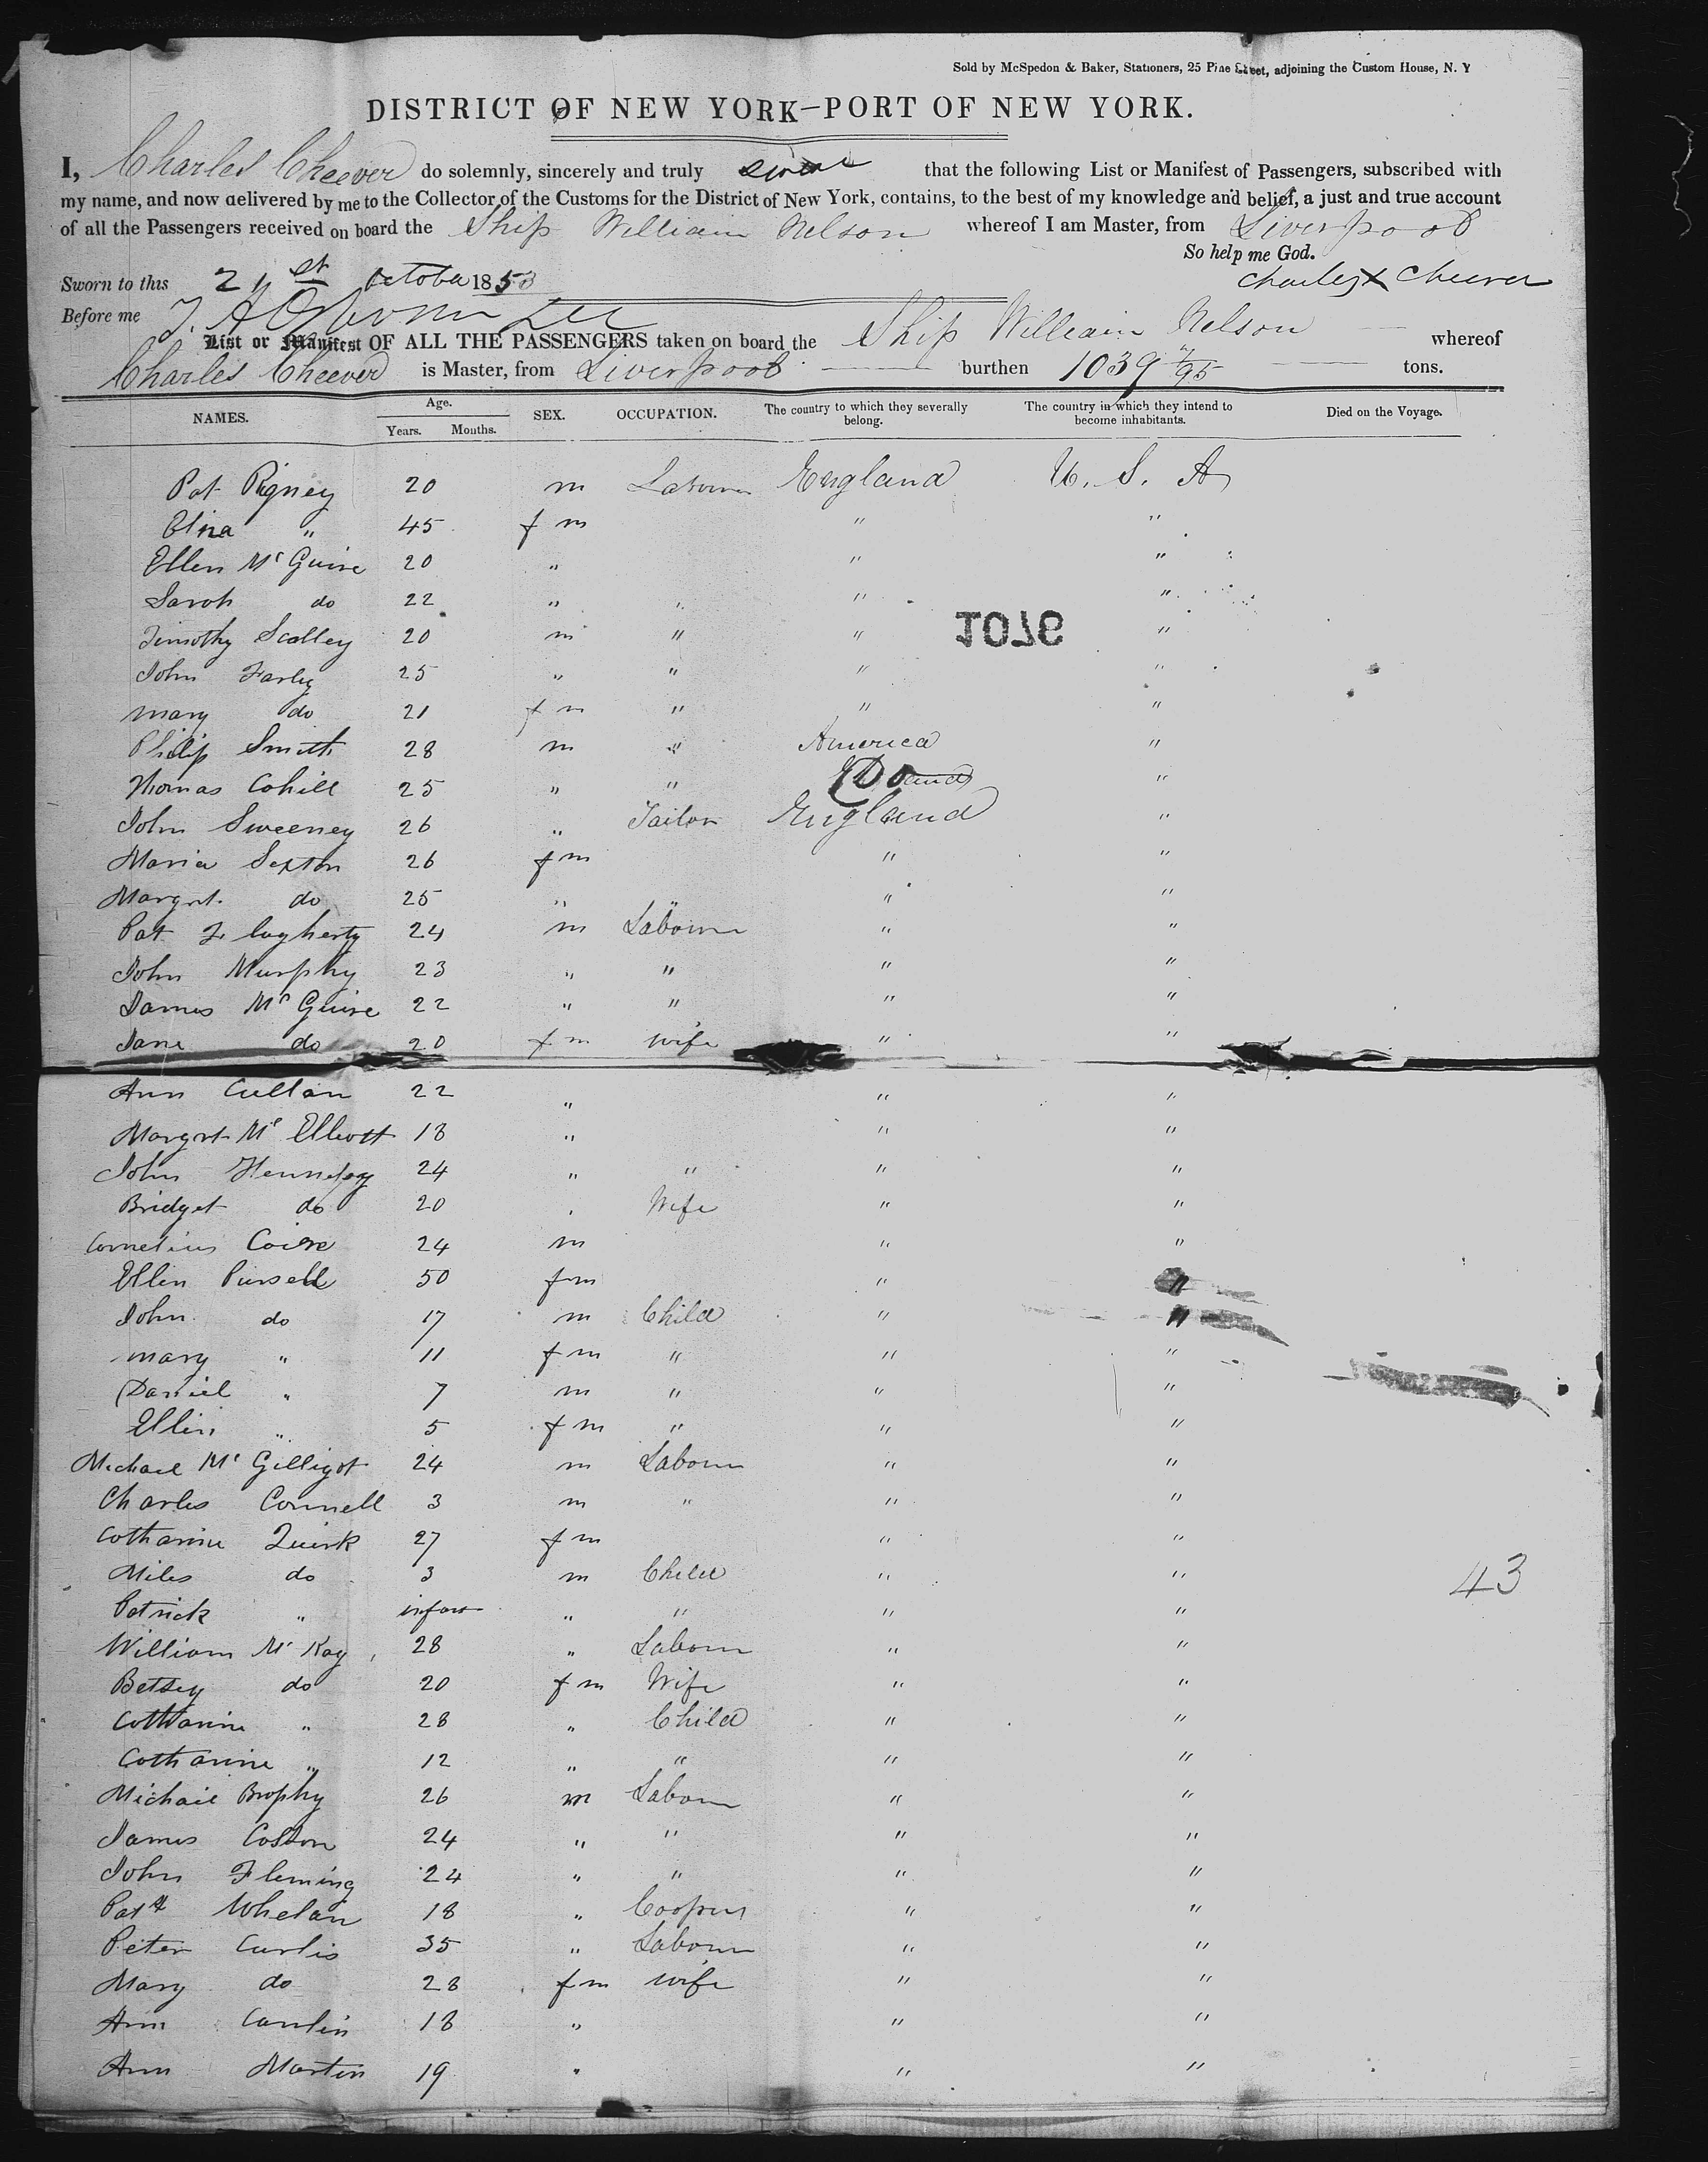 Sold by McSpedon & Baker, Stationers, 25 Pine Street, adjoining the Custom House, N. Y
DISTRICT OF NEW YORK—PORT OF NEW YORK.
I, Charles Cheever do solemnly, sincerely and truly swear that the following List or Manifest of Passengers, subscribed with
my name, and now delivered by me to the Collector of the Customs for the District of New York, contains, to the best of my knowledge and belief, a just and true account
of all the Passengers received on board the Ship William Nelson whereof I am Master, from Liverpool
So help me God.
Sworn to this 21st October 1853 Charles X Cheever
Before me
List or Manifest OF ALL THE PASSENGERS taken on board the Ship William Nelson whereof
Charles Cheever is Master, from Liverpool burthen 1039 /95 tons.
NAMES. Age. Years. Months. SEX. OCCUPATION. The country to which they severally belong. The country in which they intend to become inhabitants. Died on the Voyage.
Pat Rigney 20 m Labourer England U. S. A
Eliza " 45 f m " "
Ellen Mc Guire 20 " " "
Sarah do 22 " " " "
Timothy Scalley 20 m " " "
1076
John Farley 25 " " " "
Mary do 21 f m " " "
Philip Smith 28 m " America "
Thomas Cahill 25 " " Do "
John Sweeney 26 " Tailor England "
Maria Sexton 26 f m " "
Margrt. do 25 " " " "
Pat Flagherty 24 m Labourer " "
John Murphy 23 " " " "
James Mc Guire 22 " " " "
Jane do 20 f m wife " "
Ann Cullan 22 " " "
Margrt Mc Elliott 18 " " "
John Hennesy 24 " " " "
Bridget do 20 Wife " "
Cornelius 24 m " "
Ellen Pursell 50 f m " "
John do 17 m Child " "
Mary " 11 f m " " "
Daniel " 7 m " " "
Ellin " 5 f m " " "
Michael Mc Gilligot 24 m Labourer " "
Charles Connell 3 m " " "
Catharine Quirk 27 f m " "
Miles do 3 m Child " " 43
Patrick " infant " " " "
William Mc Kay 28 " Labourer " "
Betsey do 20 f m Wife " "
Catharine " 28 " Child " "
Catharine " 12 " " " "
Michael Brophy 26 m Labourer " "
James Coston 24 " " " "
John Fleming 24 " " " "
Patk Whelan 18 " Cooper " "
Peter Curlis 35 " Labourer " "
Mary do 28 f m wife " "
Ann Carlin 18 " " "
Ann Martin 19 " " "